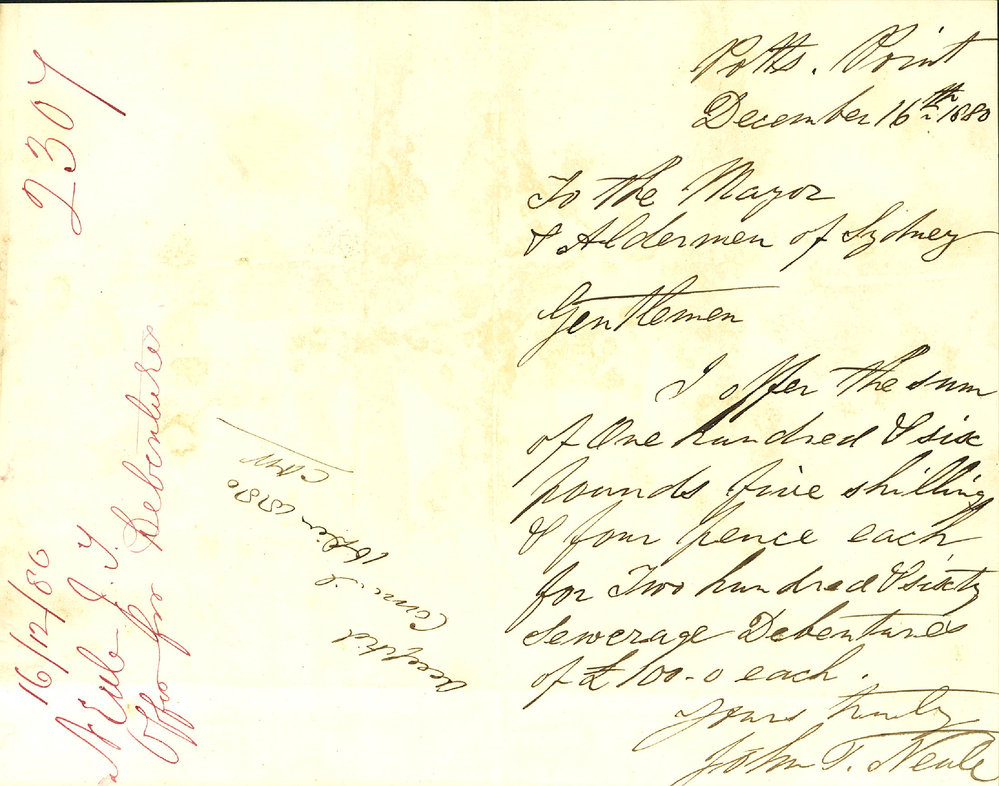 Potts. Point
December 16th 1880
To the Mayor
& Aldermen of Sydney
Gentlemen
I offer the sum
of One hundred & six
pounds five shillings
& four pence each
for Two hundred & sixty
Sewerage Debentures
of £100-0 each.
Yours truly
John T. Neale
2307
16/12/80
Neale J. T.
Offer for Debentures
Accepted
Council
16 Decr 1880